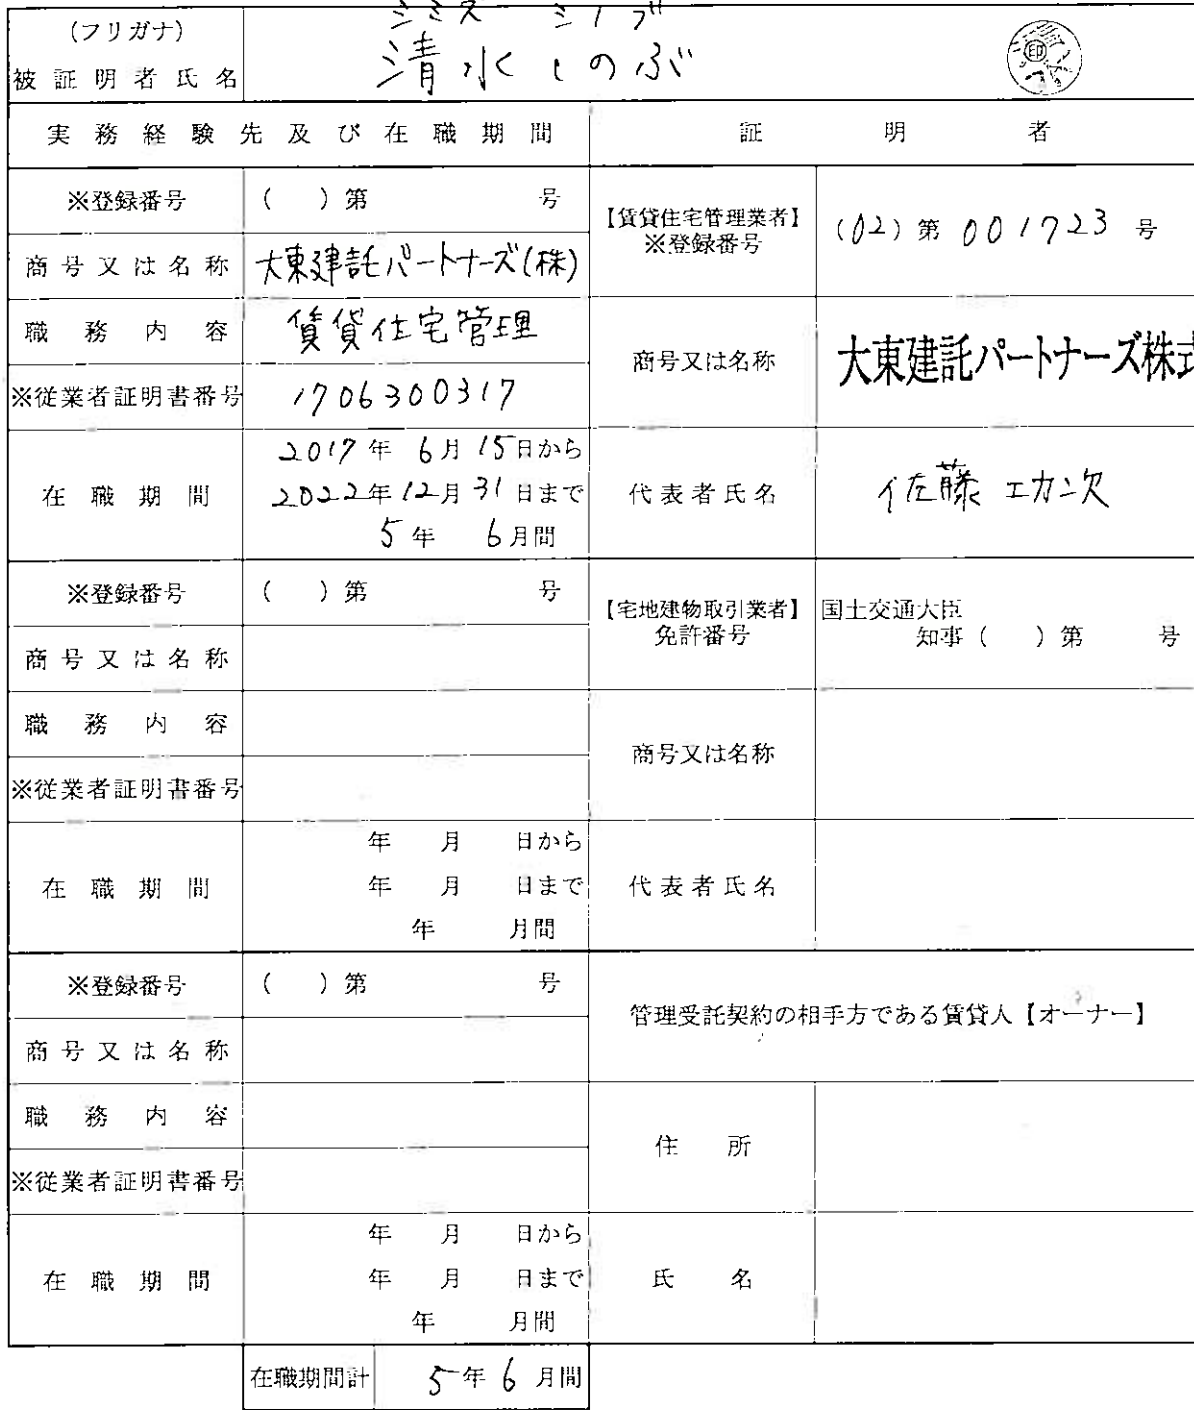 シミズ シノブ
(フリガナ)
清水しのぶ
印
被証明者氏名
実務経験先及び在職期間 証明者
※登録番号 ( )第 号
【賃貸住宅管理業者】
※登録番号
(02)第001723号
商号又は名称 大東建託パートナーズ(株)
職務内容 賃貸住宅管理
商号又は名称 大東建託パートナーズ株式
※従業者証明書番号 1706300317
2017年6月15日から
在職期間 2022年12月31日まで
5年 6月間
代表者氏名 佐藤 功次
※登録番号 ( )第 号
【宅地建物取引業者】
免許番号
国土交通大臣
知事( )第 号
商号又は名称
職務内容
商号又は名称
※従業者証明書番号
年 月 日から
在職期間 年 月 日まで
年 月間
代表者氏名
※登録番号 ( )第 号
管理受託契約の相手方である賃貸人【オーナー】
商号又は名称
職務内容
住所
※従業者証明書番号
年 月 日から
在職期間 年 月 日まで
年 月間
氏名
在職期間計 5年6月間